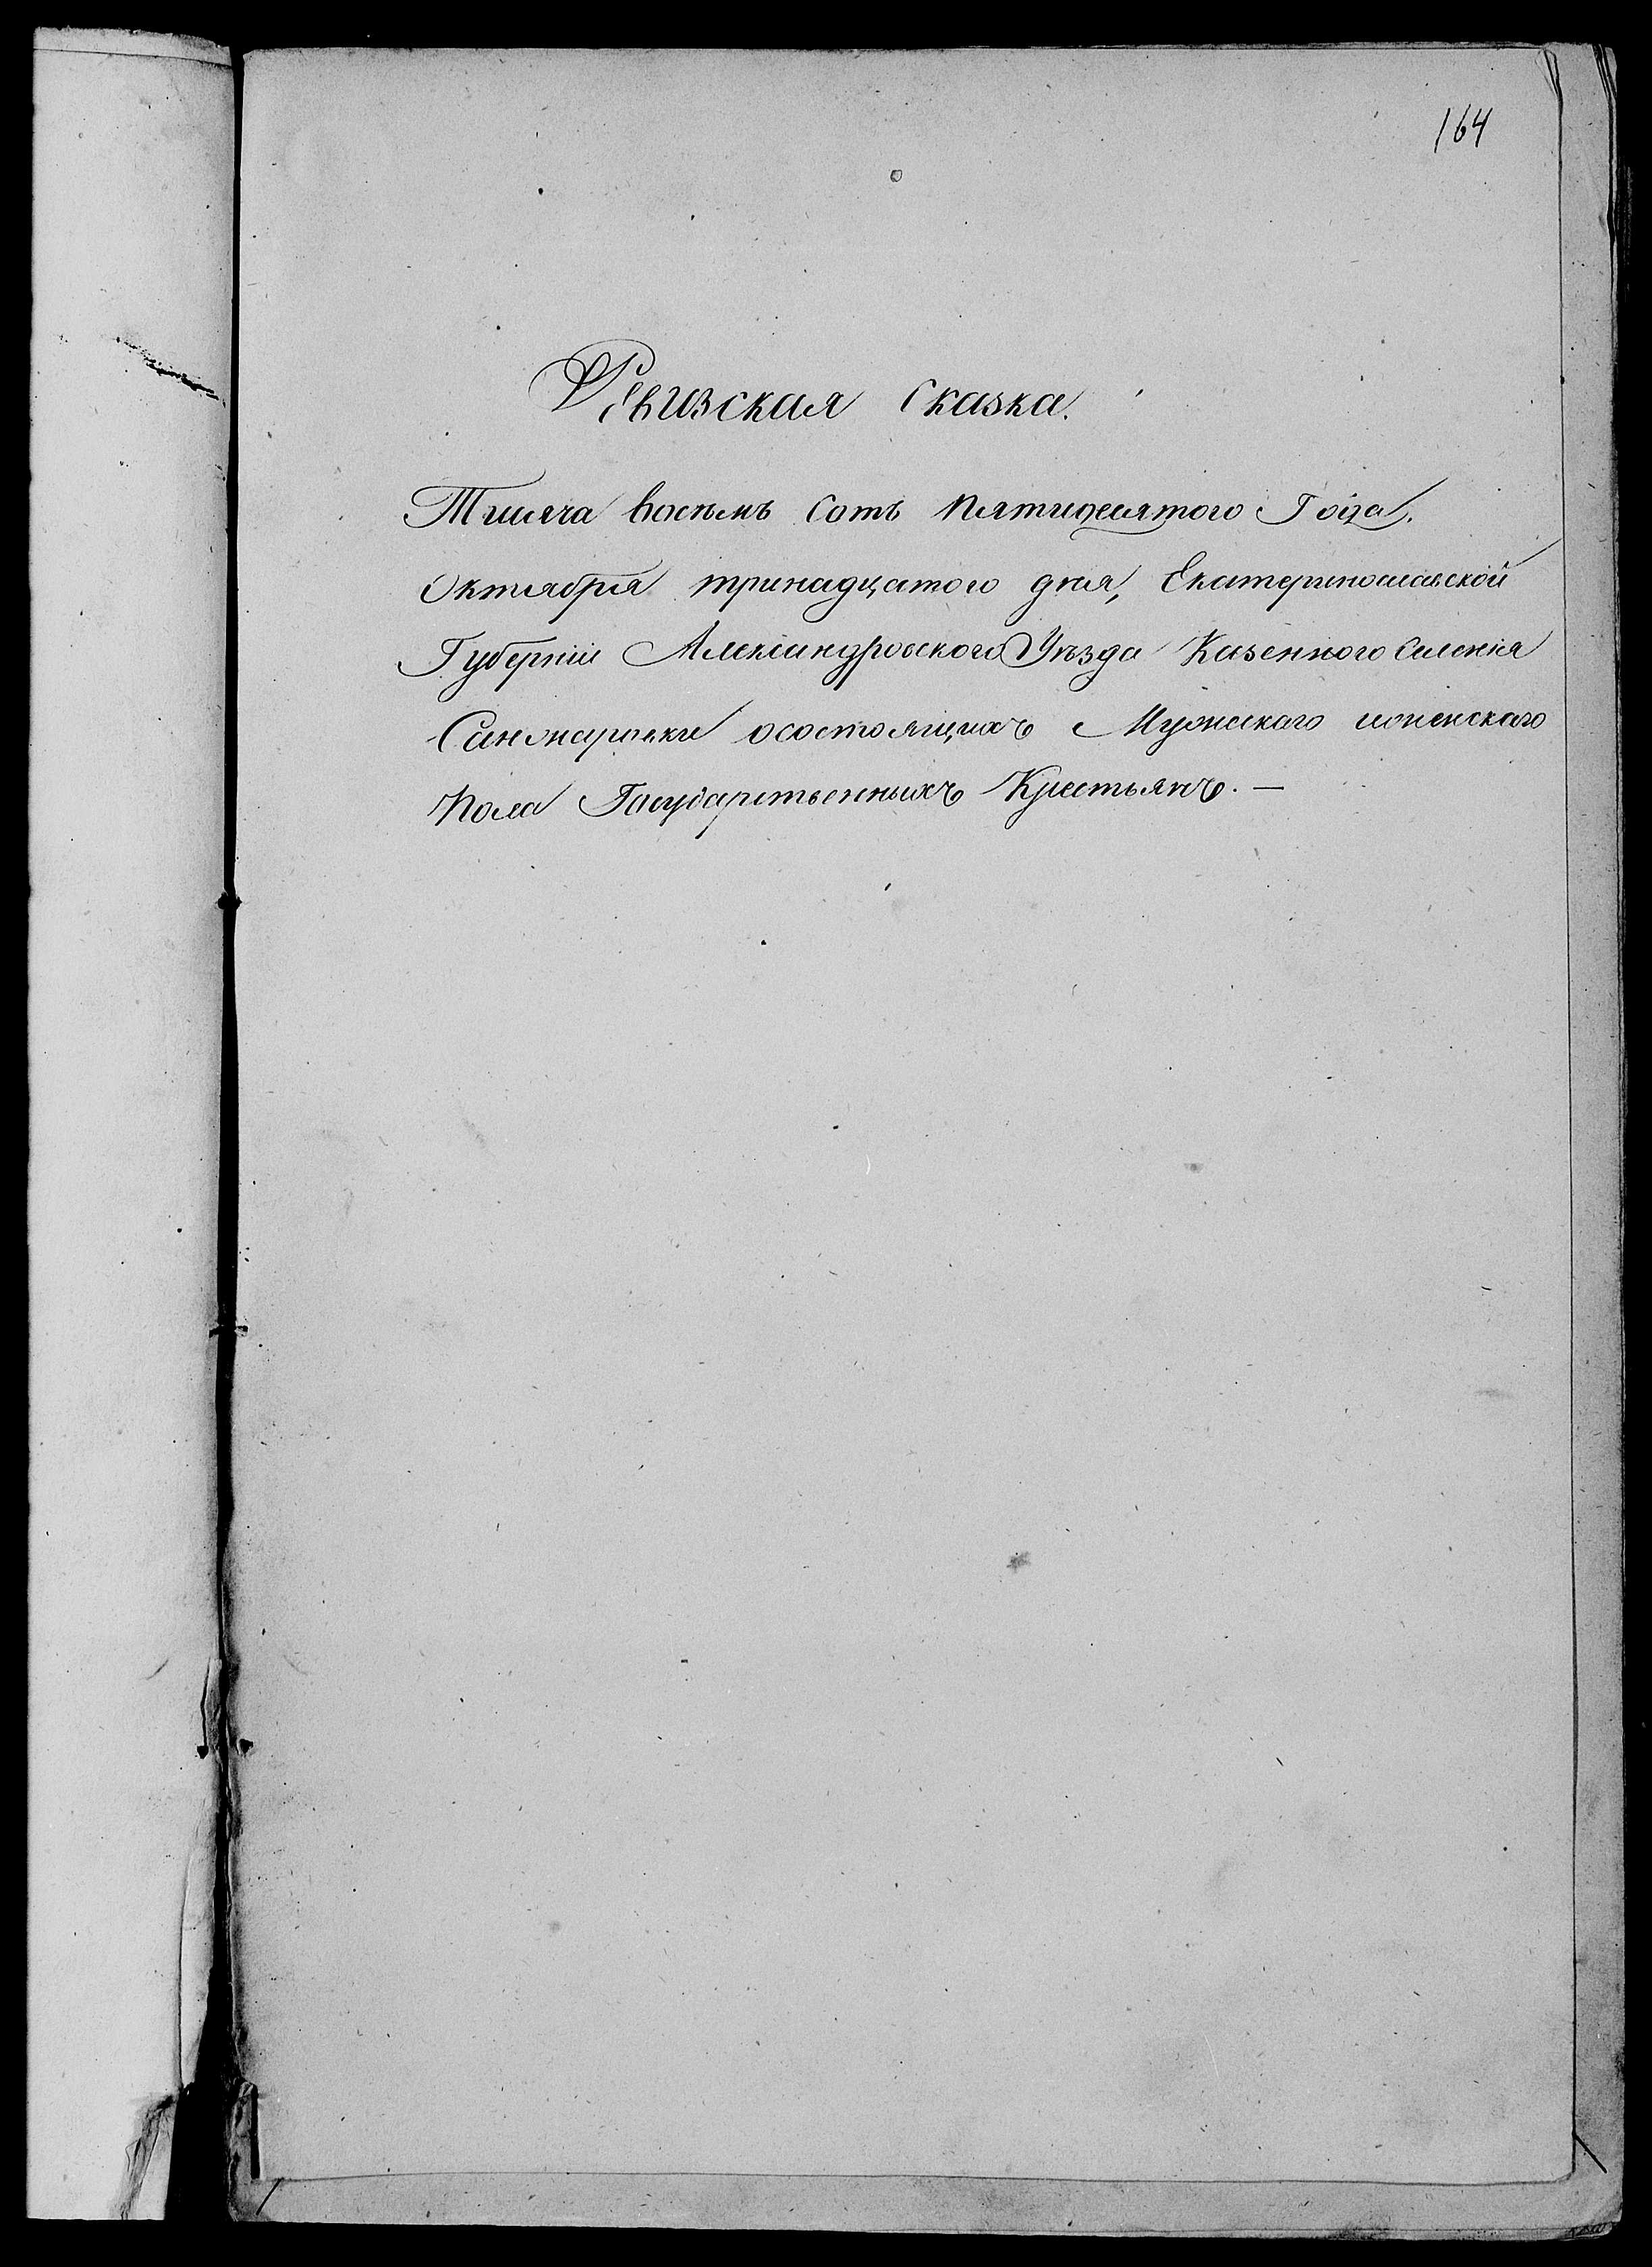 164
Ревизская Сказка.
Тисяча восемь сотъ пятидесятого Года.
Октября тринадцатого дня, Екатеринославской
Губерніи Александровского Уѣзда Казенного Селенія
Санжаровки осостоящихъ Мужскаго иженскаго
Пола Государственныхъ Крестьянъ. —